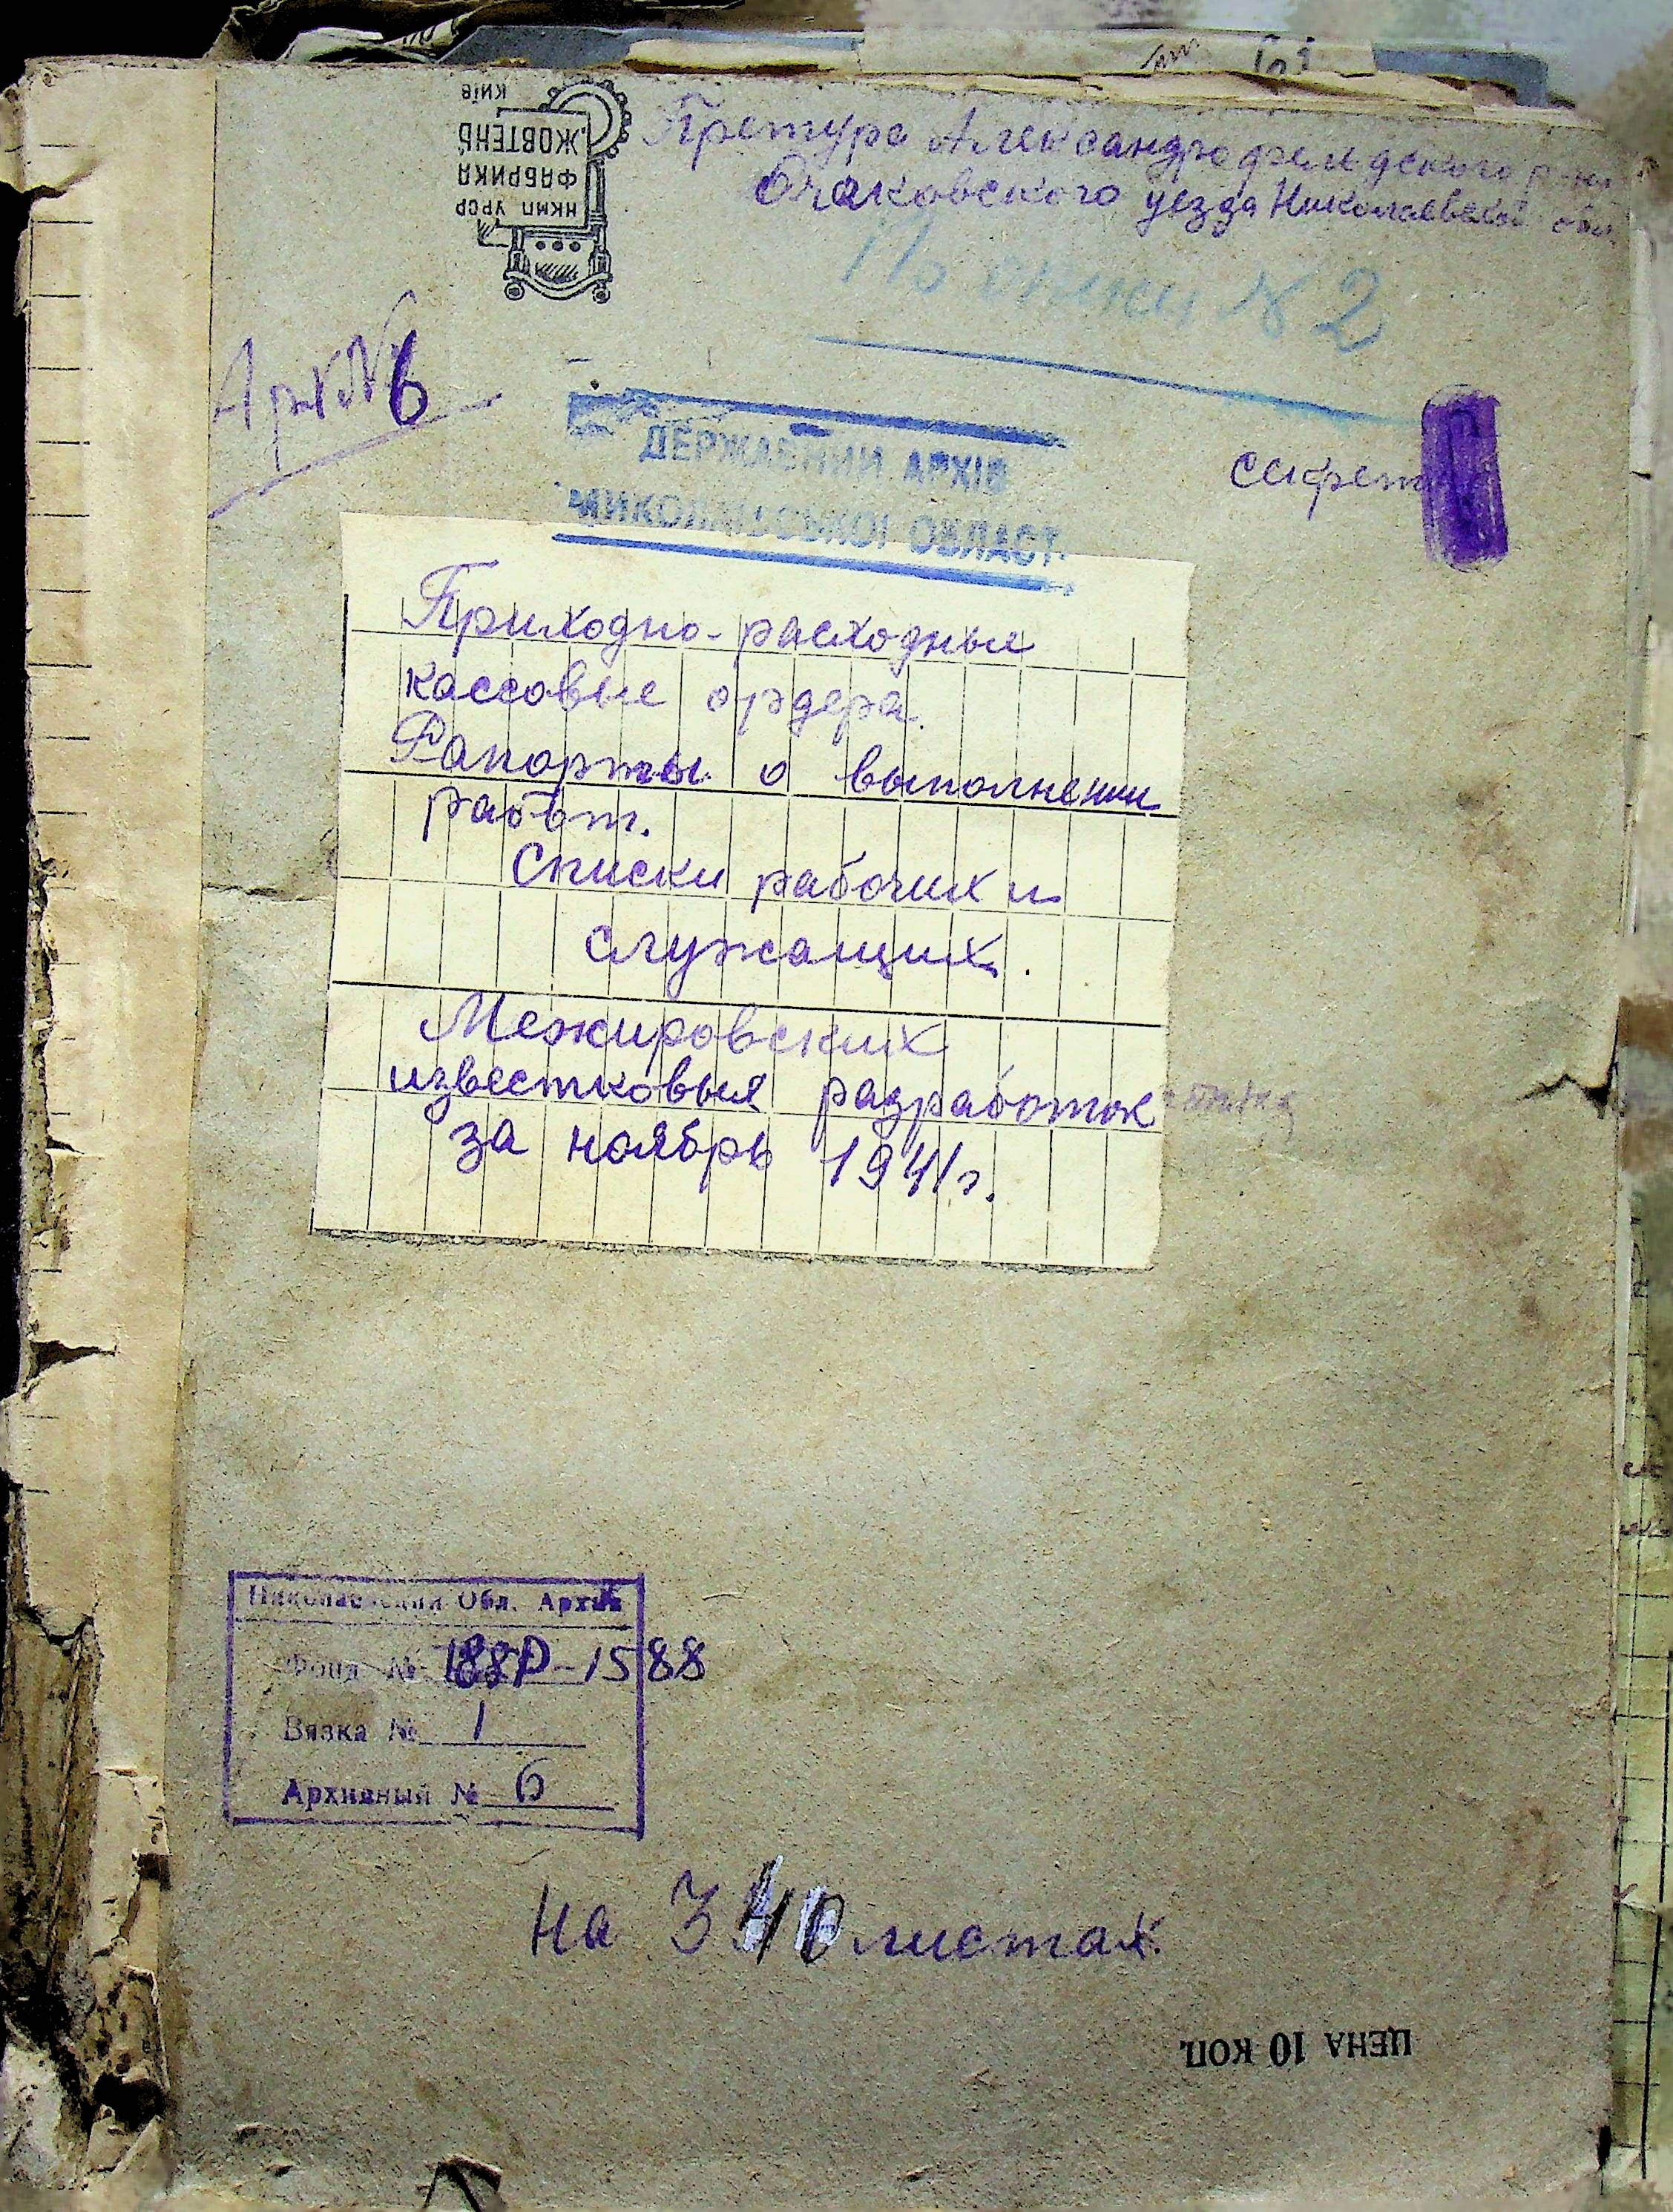 КИЇВ
ЖОВТЕНЬ
ФАБРИКА
НКМП УРСР
Претура Александрофельдского р-на
Очаковского уезда Николаевской обл.
По описи № 2
Арх №6
ДЕРЖАВНИЙ АРХІВ
МИКОЛАЇВСЬКОЇ ОБЛАСТІ
секретно
Приходно-расходные
кассовые ордера.
Рапорты о выполнении
работ.
Списки рабочих и
служащих.
Межировских
известковых разработок
за ноябрь 1941 г.
Николаевский Обл. Архив
Фонд № 188Р-1588
Вязка № 1
Архивный № 6
на 340 листах.
ЦЕНА 10 КОП.